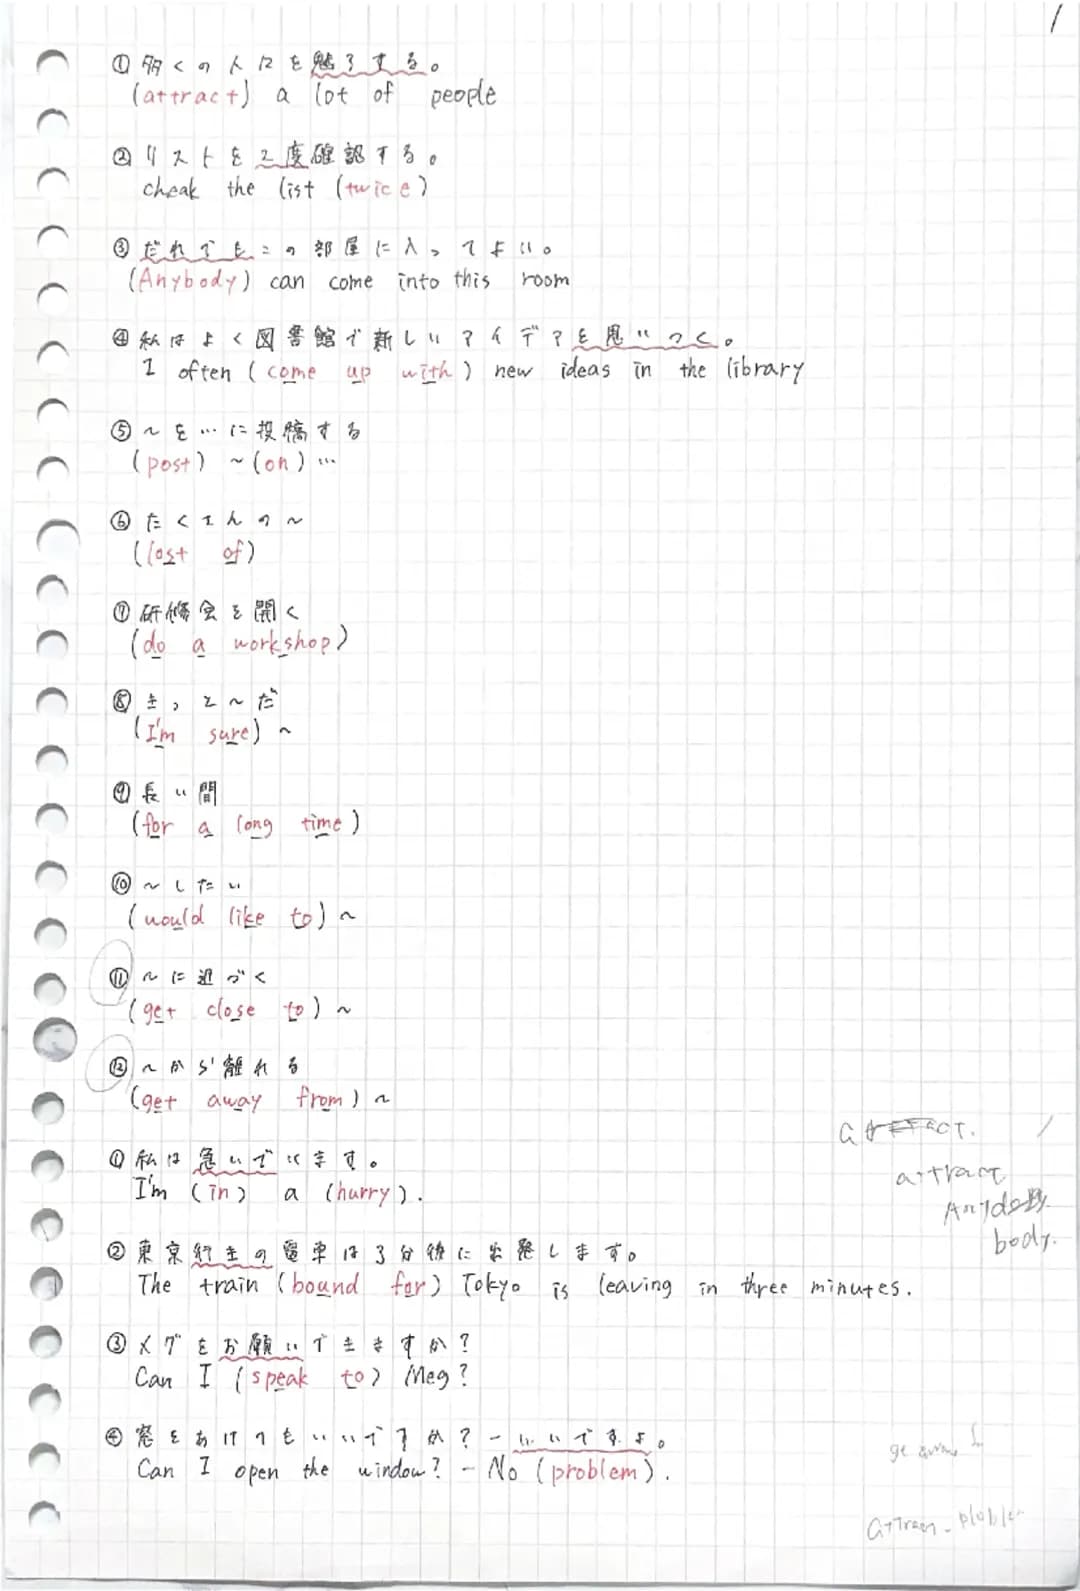 1
① 多くの人々を魅了する。
(attract) a lot of people
② リストを2度確認する。
cheak the list (twice)
③ だれでもこの部屋に入ってよい。
(Anybody) can come into this room
④ 私はよく図書館で新しいアイデアを思いつく。
I often (come up with) new ideas in the library
⑤ ~を…に投稿する
(post) ~ (on) …
⑥ たくさんの~
(lost of)
⑦ 研修会を開く
(do a workshop)
⑧ きっと~だ
(I'm sure) ~
⑨ 長い間
(for a long time)
⑩ ~したい
(would like to) ~
⑪ ~に近づく
(get close to) ~
⑫ ~から離れる
(get away from) ~
① 私は急いでいます。
I'm (in) a (hurry).
② 東京行きの電車は3分後に出発します。
The train (bound for) Tokyo is leaving in three minutes.
③ メグをお願いできますか?
Can I (speak to) Meg?
④ 窓をあけてもいいですか? - いいですよ。
Can I open the window? - No (problem).
attract
body.